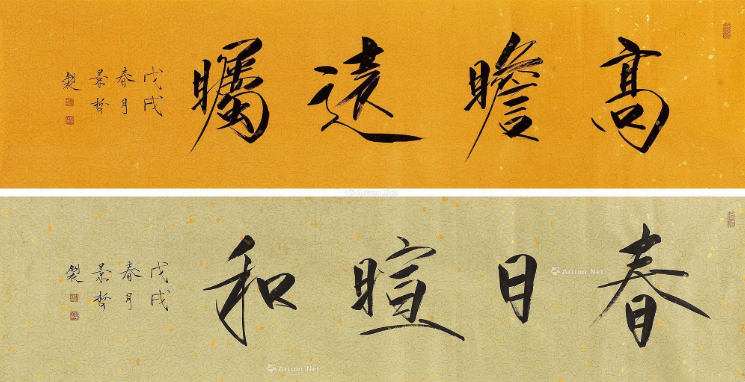 高瞻遠矚
戊戌
春月
景哲
製
Artron.Net
春日暄和
戊戌
春月
景哲
製
Artron.Net
Artron.Net